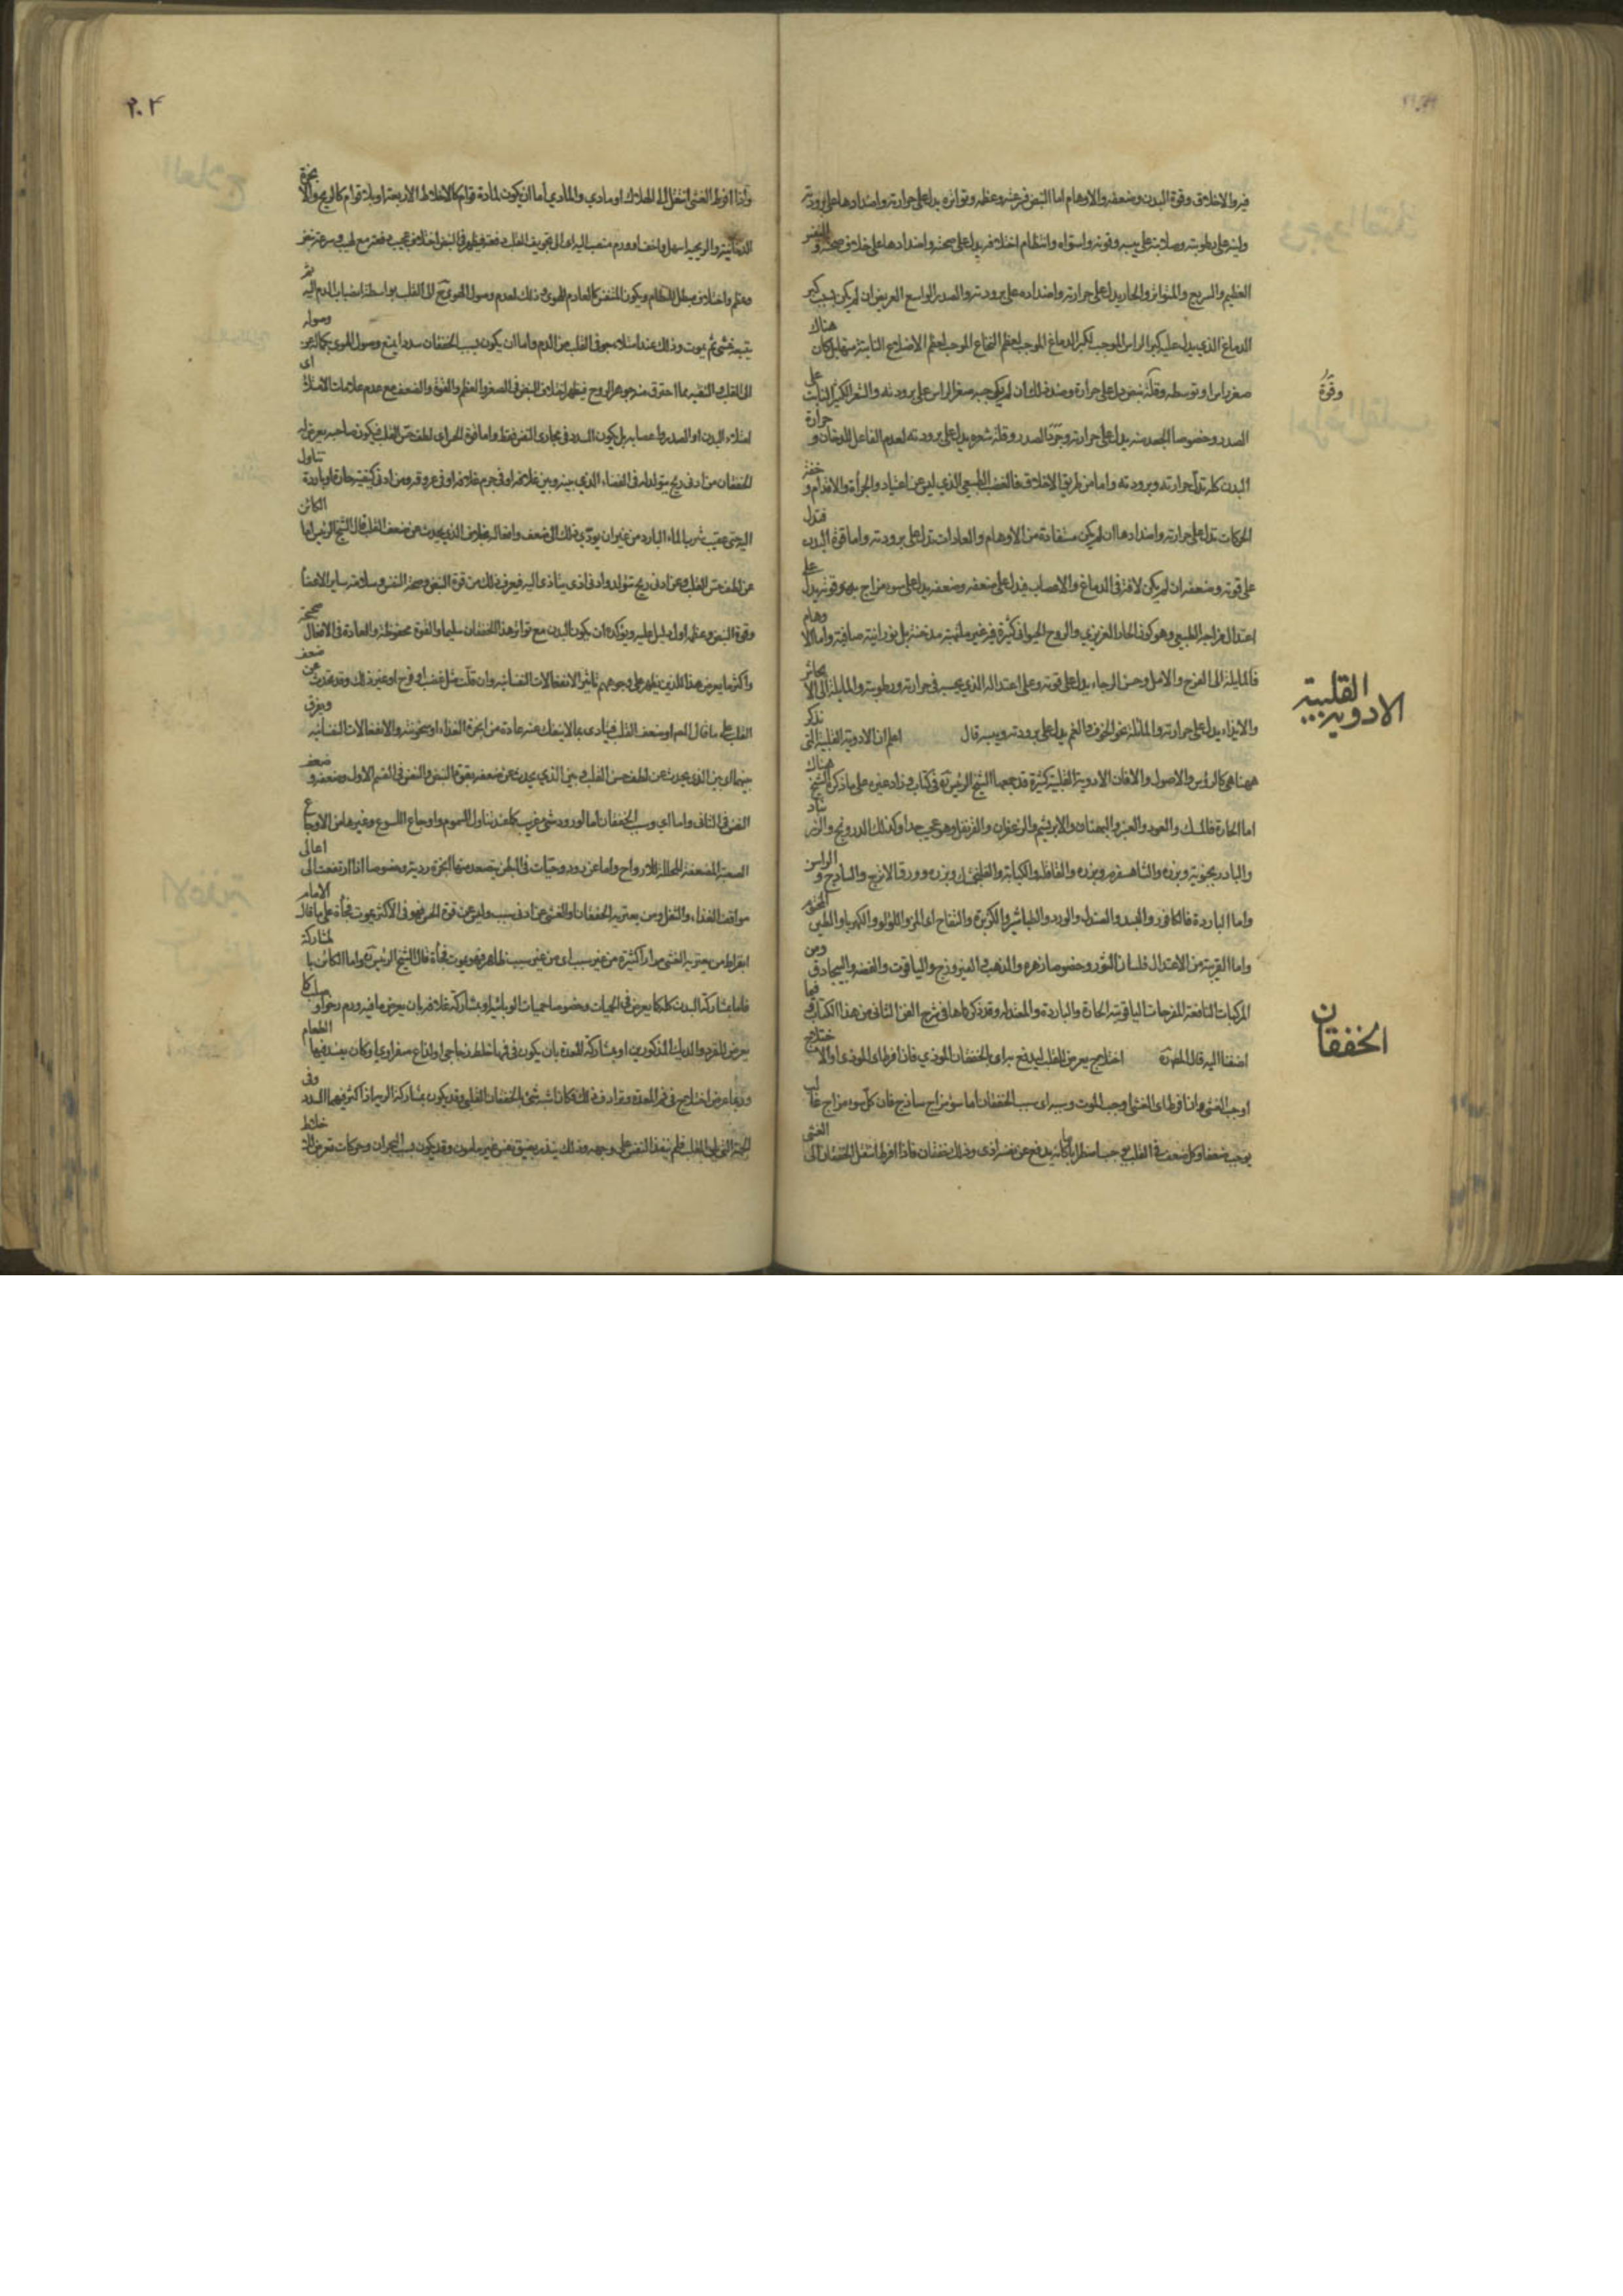 فيه والاخلاق وقوة البدن وضعفه والاوهام اما النبض فسرعته وعظمه وتواتره يدل على حرارته واضدادها على برودته
ولينه على رطوبته وصلابته على يبسه وقوته واستواه وانتظام اختلافه يدل على صحته واضدادها على خلاف صحته والنفس
العظيم والسريع والمتواتر والحار يدل على حرارته واضداده على برودته والصدر الواسع العريض ان لم يكن بسبب كبر
الدماغ الذي يدل عليه كبر الراس الموجب لكبر الدماغ الموجب لعظم النخاع الموجب لعظم الاضلاع النابتة منه بل كان هناك
صغر راس او توسطه وقلة نبض دل على حرارة وضد ذلك ان لم يكن يوجبه صغر الراس على برودته والشعر الكثير النابت على
وقوة
الصدر وخصوصا الجعد منه يدل على حرارته وجرد الصدر وقلة شعره يدل على برودته لعدم الفاعل للدخان وحرارة
البدن كله تدل حرارته وبرودته واما من طريق الاخلاق فالغضب الطبيعي الذي ليس عن اعتياد والجرأة والاقدام وخفة
الحركات تدل على حرارته واضدادها ان لم يكن مستفادة من الاوهام والعادات تدل على برودته واما قوة البدن فتدل
على قوته وضعفه ان لم يكن لافة في الدماغ والاعصاب فيدل على ضعفه وضعفه يدل على سوء مزاج به وقوته يدل على
اعتدال مزاجه الطبيعي وهو كون الحار الغريزي والروح الحيواني كثيرة فيه غير ملتهبة مدخنة بل نورانية صافية واما الاوهام
فالمايلة الى الفرح والامل وحسن الرجاء يدل على قوته وعلى اعتداله الذي بحسبه في حرارته ورطوبته والمايلة الى الايحاش
والايذاء يدل على حرارته والمايلة نحو الخوف والغم يدل على برودته ويبسه قال اعلم ان الادوية القلبية التي نذكر
الادوية القلبية
ههنا هي كالرؤس والاصول والا فان الادوية القلبية كثيرة قد جمعها الشيخ الرئيس في كتاب وزاد غيره على ما ذكره الشيخ هناك
اما الحارة فالمسك والعود والعنبر والبهمنان والابريشم والزعفران والقرنفل وهو عجيب جدا وكذلك الدرونج والزرنباد
والبادرنجبويه وبزره والشاهسفرم وبزره والقاقلة والكبابة والفلنجمشك وبزره وورق الاترج والساذج والراسن
واما الباردة فالكافور والبسد والصندل والورد والطباشير والكزبرة والتفاح اى المز واللؤلؤ والكهربا والطين المختوم
واما القريبة من الاعتدال فلسان الثور وخصوصا زهره والذهب والفيروزج والياقوت والفضة والبيجادق ومن
المركبات النافعة المفرحات الياقوتية الحارة والباردة والمعتدلة وقد ذكرناها في شرح الفن الثاني من هذا الكتاب فيما
اضفنا اليه قال الخفقان اختلاج يعرض للقلب ليدفع به اى بالخفقان الموذي فان افرط اى الموذى او الاختلاج
الخفقان
اوجب الغشي وان افرط اى الغشي اوجب الموت وسببه اى سبب الخفقان اما سوء مزاج ساذج فان كل سوء مزاج غالب
يوجب ضعفا وكل ضعف في القلب يوجب اضطرابا ما كانه يدفع عن نفسه اذى وذلك خفقان فاذا افرط انتقل الخفقان الى الغشي
٢٠٢
واذا افرط الغشي انتقل الى الهلاك او مادي والمادي اما ان يكون لمادة قوام كالاخلاط الاربعة او بلا قوام كالريح والابخرة
الدخانية والريحية اسهل واخف او ورم منصب اليه اى الى تجويف القلب دفعة فيظهر في النبض اختلاف عجيب دفعة مع لهيب وسرعة نفس
وعظم واختلاف مبطل للنظام ويكون المتنفس كالعادم للهوى وذلك لعدم وصول الهوى ح الى القلب بواسطة انصباب الدم اليه ثم
يتبعه غشي ثم يموت وذلك عند امتلاء جوف القلب من الدم واما ان يكون بسبب الخفقان سدد ايمنع وصول الهوى بكماله من وصوله
الى القلب والتنفيه مما احترق من جوهر الروح فيظهر اختلاف النبض في الصغر والعظم والقوة والضعف مع عدم علامات الامتلاء اى
امتلاء البدن او الصدر واعصابه بل يكون السدد في مجارى النفس فقط واما قوة الحس اى لطف حس القلب فيكون صاحبه يعرض له
الخفقان من ادنى ريح يتولد له في الفضاء الذي بينه وبين غلافه او في جرم غلافه او في عروقه ومن ادنى كيفية حارة او باردة تناول
اليه حتى عقيب شرب الماء البارد من غير ان يودي ذلك الى ضعف وافعاله بخلاف الذي يحدث عن ضعف القلب قال الشيخ الرئيس اما الكائن
عن لطف حس القلب وعن ادنى ريح تتولد وادنى اذى يتاذى اليه فيعرف ذلك من قوة النبض وصحة النفس وسلامة ساير الاعضا
وقوة النبض وعظمه اول دليل عليه ويؤكده ان يكون البدن مع تواتر هذا الخفقان سليما والقوة محفوظة والعادة في الافعال صحيحة
واكثر ما يعرض هذا للذين يظهر على وجوههم تاثير الانفعالات النفسانية وان قلت مثل غضب او فرح او غير ذلك وقد يحدث عن ضعف
القلب على ما قال الحس او ضعف القلب فيتاذى بما لا ينفك عنه عادة من ابخرة الغذاء او سخونته والانفعالات النفسانية ويفرق
بينهما اى بين الذي يحدث عن لطف حس القلب وبين الذي يحدث عن ضعفه بقوة النبض والنفس في القسم الاول وضعفه وضعف
النفس في الثاني واما اى وسبب الخفقان اما لورود شئ غريب كما عند تناول السموم واوجاع اللسوع وغيرها من الاوجاع
الصعبة المضعفة المحللة للارواح واما عن دود وحيات في البطن يتصعد منها ابخرة ردية وخصوصا اذا ارتفعت الى اعالى
مواقف الغذاء والثفل ومن يعتريه الخفقان او الغشي عن ادنى سبب وليس عن قوة الحس فهو في الاكثر يموت فجأة على ما قال الامام
ابقراط من يعتريه الغشي مرارا كثيرة من غير سبب اى من غير سبب ظاهر فهو يموت فجأة قال الشيخ الرئيس واما الكائن بالمشاركة
فاما بمشاركة البدن كله كما يعرض في الحميات وخصوصا حميات الوبائية او بمشاركة غلافه بان يعرض ما فيه ورم رخو او
يعرض للقرد والديك المذكورين او بمشاركة المعدة بان يكون في فمها خلط زجاجى او لذاع صفراوي او كان يفسد فيها الطعام
وربما عرض اختلاج في فم المعدة وتزاد في ذلك فكان اشبه شئ بالخفقان القلبي وقد يكون بمشاركة الرية اذا كثر فيها السدد وفى
الجهة التي تلى القلب فلم ينفذ النفس على وجهه وذلك ينذر بضيق نفس غير مامون وقد يكون بسبب البحران وحركات تعرض للاخلاط